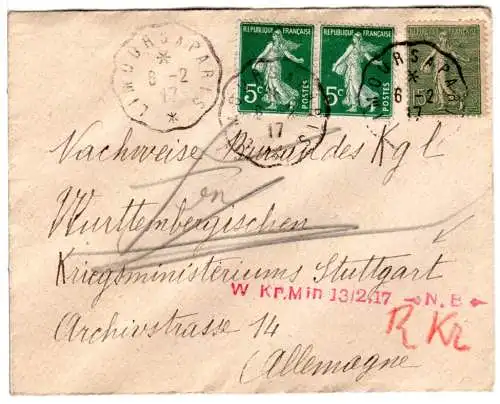 LIMOURS A PARIS
6 -2
17
REPUBLIQUE FRANÇAISE
5c
POSTES
REPUBLIQUE FRANÇAISE
5c
POSTES
17
6 -2
17
Nachweise Bureau des Kgl
Württembergischen
Kriegsministeriums Stuttgart
W Kr.Min 13/2.17 N. B
Archivstrasse 14
R Kr
Allemagne